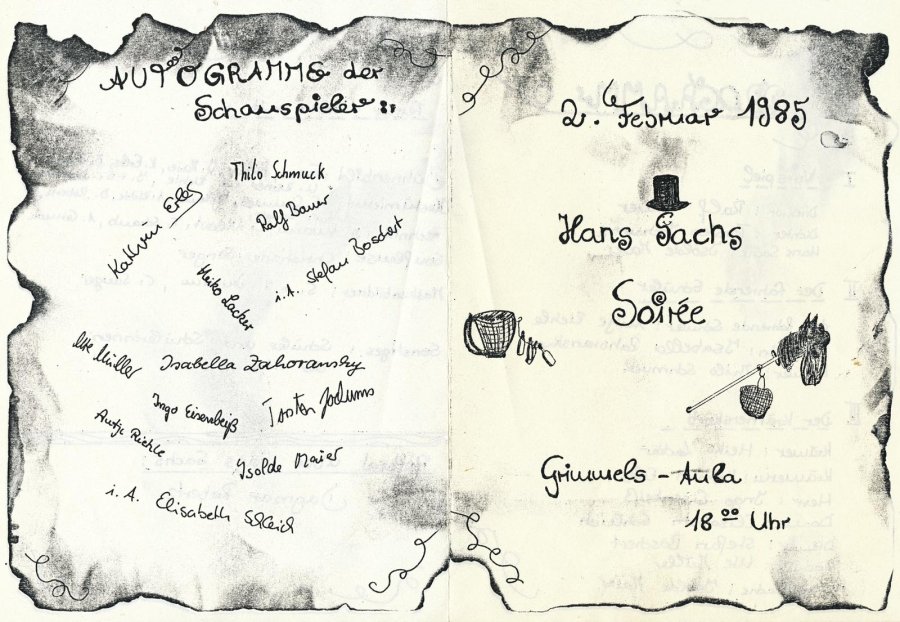 AUTOGRAMME der
Schauspieler:
Thilo Schmuck
Kathrin Erbs
Ralf Bauer
Heiko Lacker
i.A. Stefan Boschert
Ute Müller
Isabella Zahoransky
Ingo Eisenbeiß
Torsten
Antje Richle
Isolde Maier
i. A. Elisabeth Schleich
2. Februar 1985
Hans Sachs
Soirée
Grimmels - Aula
18 00 Uhr